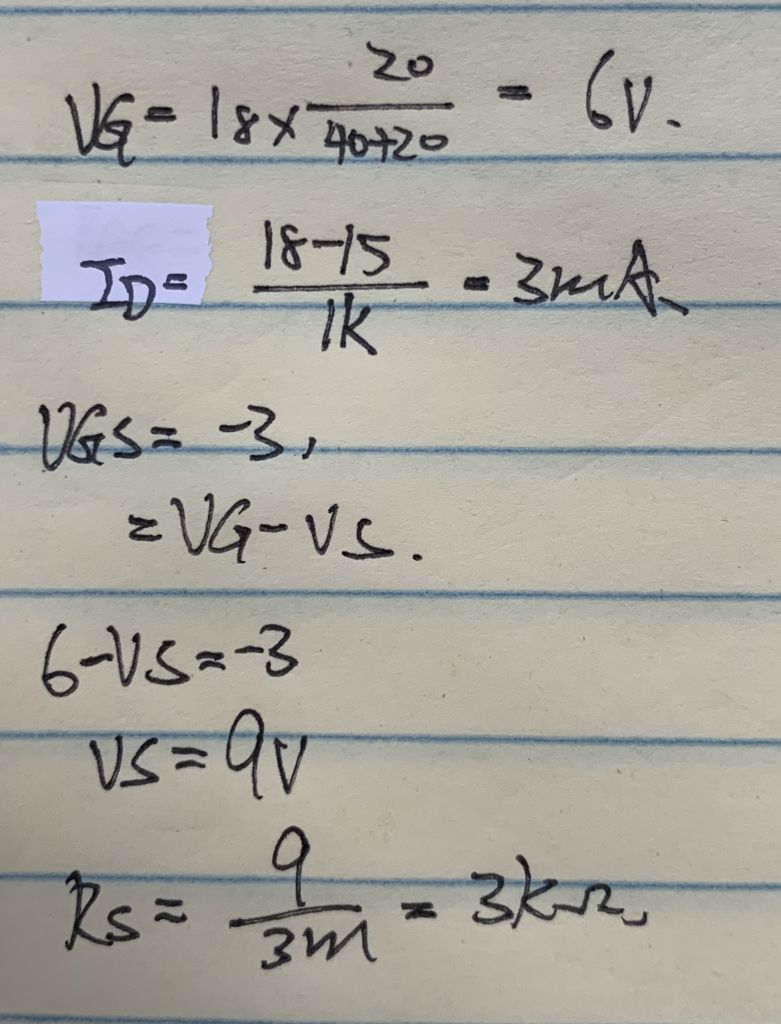 VG = 18 × 20/(40+20) = 6V.
ID = (18-15)/1K = 3mA.
VGS = -3,
= VG - VS.
6 - VS = -3
VS = 9V
RS = 9/3m = 3kΩ.